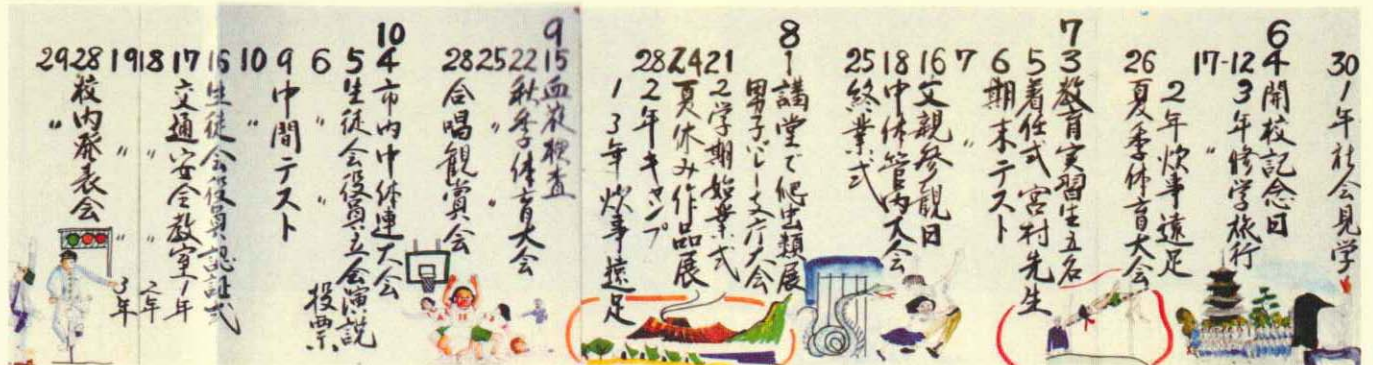 30 1年社会見学
6
4 開校記念日
12-17 3年修学旅行
〃 2年炊事遠足
26 夏季体育大会
7
3 教育実習生五名
5 着任式 宮村先生
6 期末テスト
7 〃
16 父親参観日
18 中体管内大会
25 終業式
8
1 講堂で爬虫類展
男子バレー大会
21 2学期始業式
24 夏休み作品展
28 2年キャンプ
1 3年炊事遠足
9
15 血液検査
22 秋季体育大会
25 〃
28 合唱観賞会
10
4 市内中体連大会
5 生徒会役員立会演説
6 〃 〃 投票
9 中間テスト
10 〃
16 生徒会役員認証式
17 交通安全教室1年
18 〃 2年
19 〃 3年
28 校内発表会
29 〃